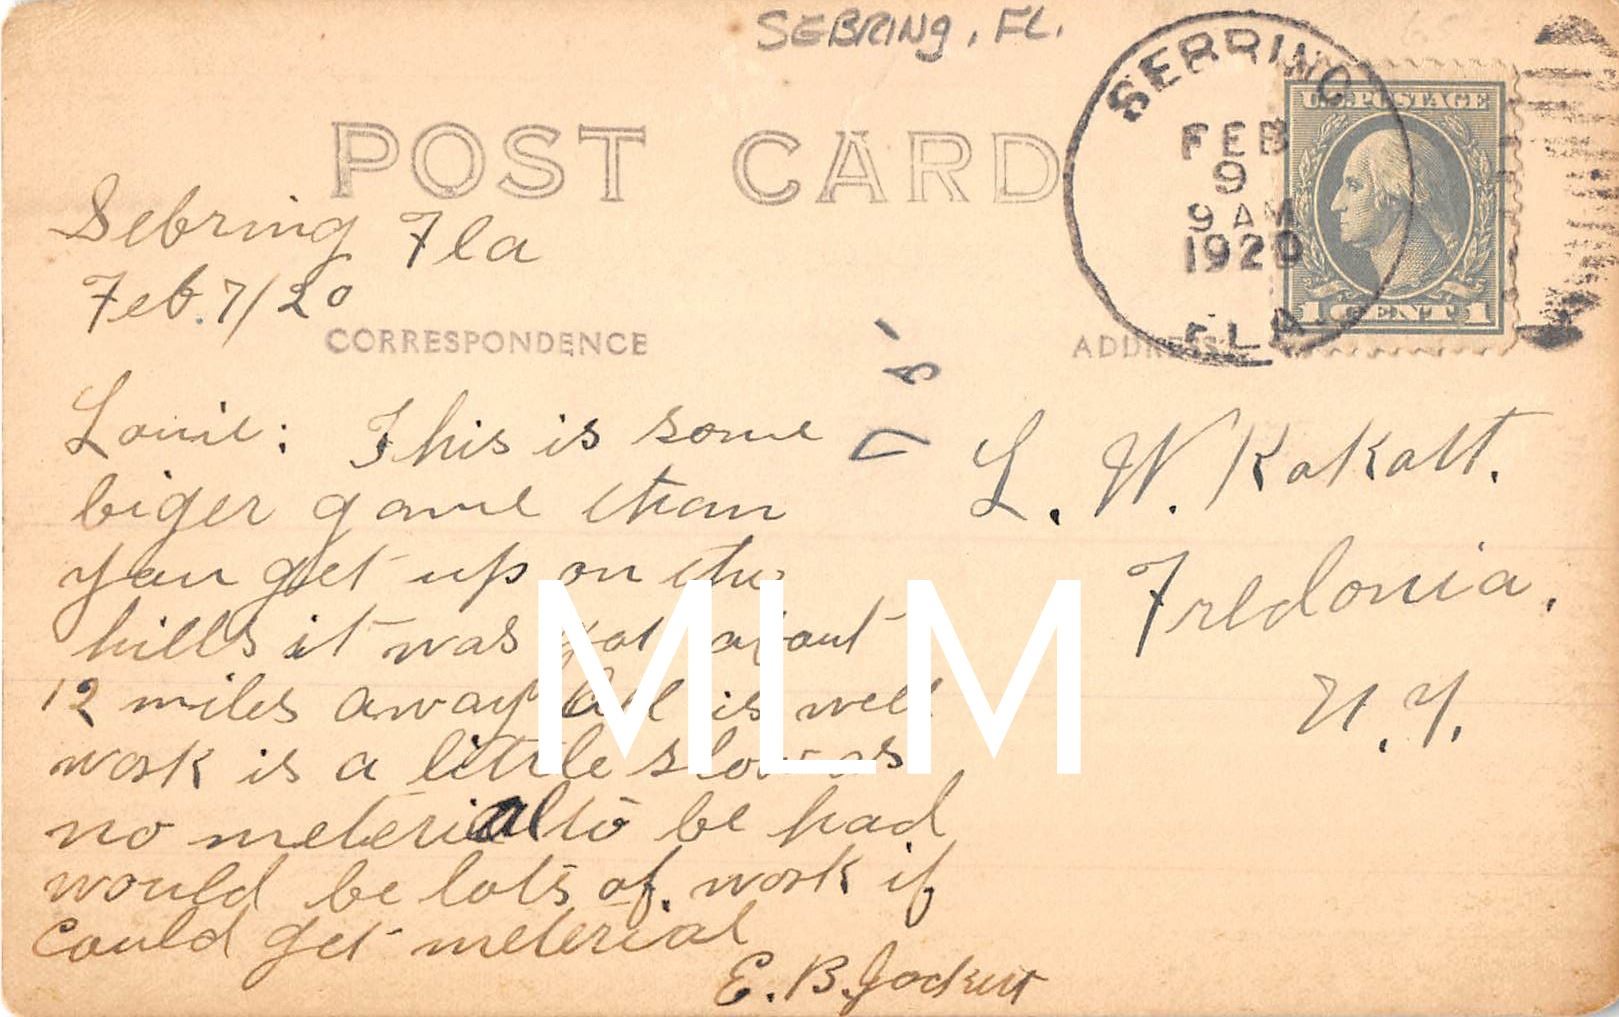 SEBRING, FL.
POST CARD
SEBRING
FEB
9
9 AM
1920
FLA
U.S. POSTAGE
1 CENT 1
Sebring Fla
Feb. 7/20
CORRESPONDENCE
ADDRESS
Louie: This is some
biger game than
you get up on the
hills it was got about
12 miles away all is well
work is a little slow as
no meterial to be had
would be lots of work if
could get meterial
E. B. Jockert
L. W. Kokott.
Fredonia,
N.Y.
MLM